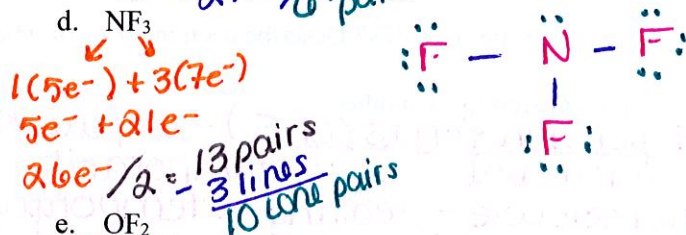 d. NF₃
1(5e⁻) + 3(7e⁻)
5e⁻ + 21e⁻
26e⁻/2 = 13 pairs
- 3 lines
10 lone pairs
F — N — F
|
F
e. OF₂